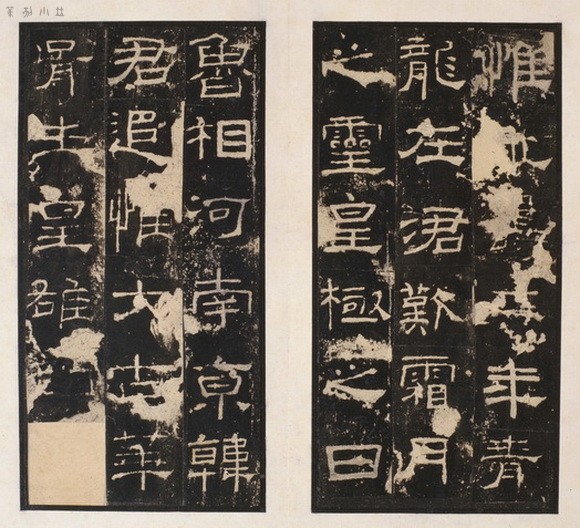 惟永壽二年青
龍在涒歎霜月
之靈皇極之日
魯相河南京韓
君追惟太古華
胥生皇雄